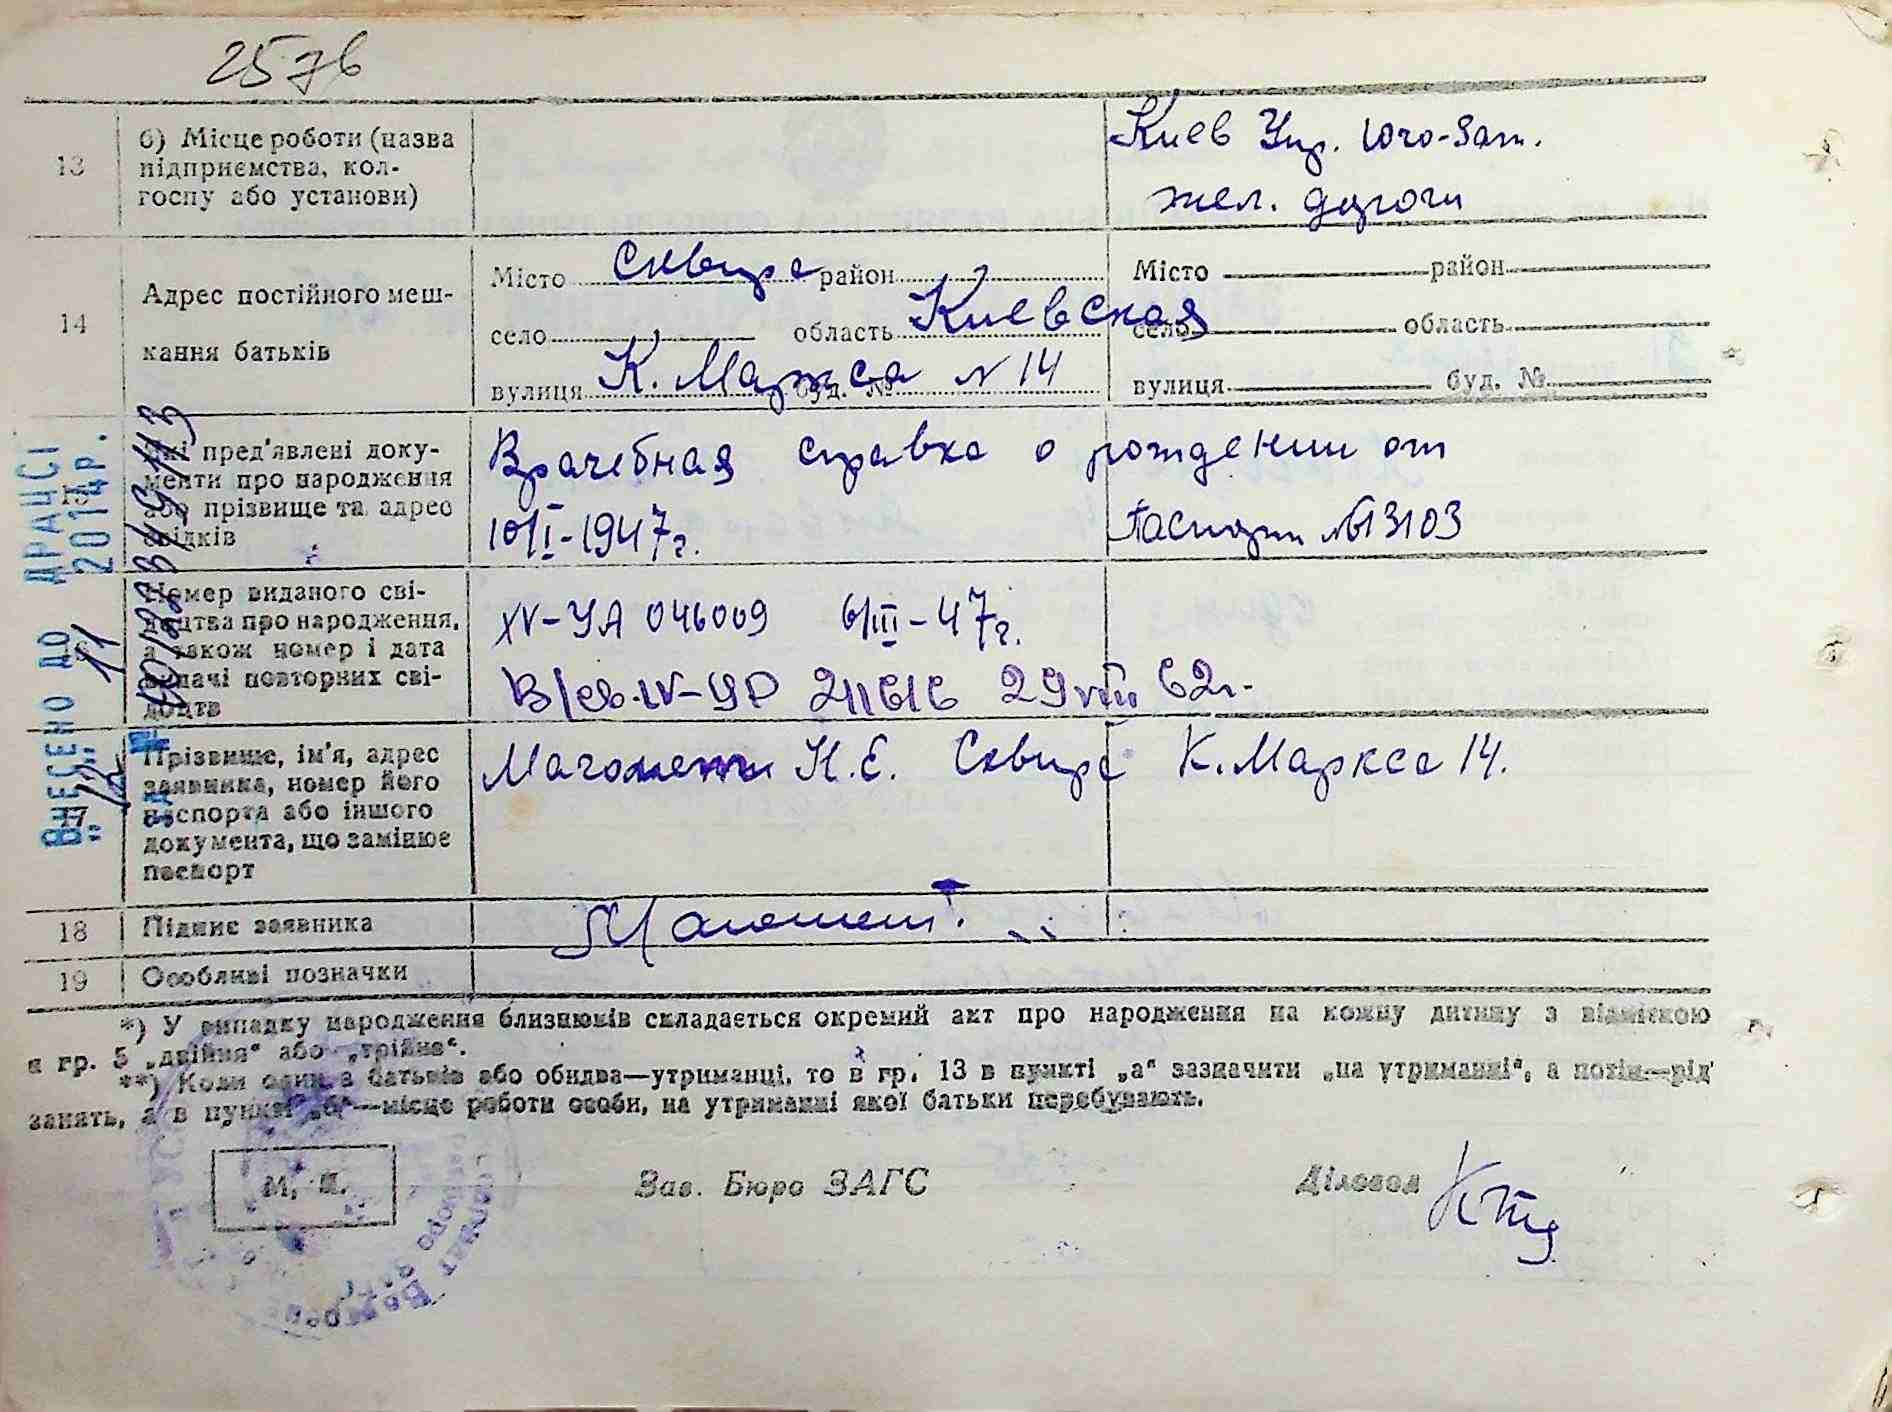 257б
13
б) Місце роботи (назва
підприємства, кол-
госпу або установи)
Киев Упр. Юго-Зап.
жел. дороги
14
Адрес постійного меш-
кання батьків
Місто Сквира район
село область Киевская
вулиця К. Маркса буд. № N 14
Місто район
село область
вулиця буд. №
15
Які пред'явлені доку-
менти про народження
або прізвище та адрес
свідків
Врачебная справка о рождении от
10/I-1947г.
Паспорт №13103
Номер виданого сві-
доцтва про народження,
а також номер і дата
видачі повторних сві-
доцтв
XV-УА 046009 6/III-47г.
В/св. IV-УР 211616 29 VIII 62г.
17
Прізвище, ім'я, адрес
заявника, номер його
паспорта або іншого
документа, що замінює
паспорт
Магомет Н.Е. Сквира К. Маркса 14.
18
Підпис заявника
Магомет.
19
Особливі позначки
ВНЕСЕНО ДО ДРАЦСІ
„12“ 11 201 р.
*) У випадку народження близнюків складається окремий акт про народження на кожну дитину з відміткою
в гр. 5 „двійня“ або „трійня“.
**) Коли один з батьків або обидва—утриманці, то в гр. 13 в пункті „а“ зазначити „на утриманні“, а потім—рід
занять, а в пункті „б“—місце роботи особи, на утриманні якої батьки перебувають.
М. П.
Зав. Бюро ЗАГС
Діловод